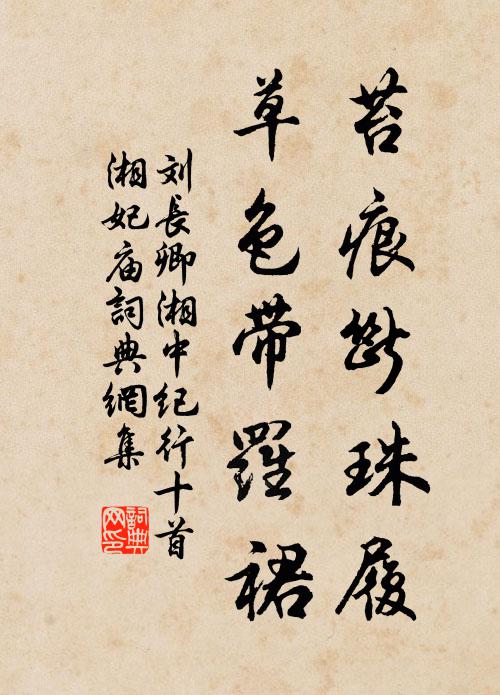 苔痕断珠履
草色帶羅裙
刘長卿湘中纪行十首
湘妃庙詞典網集
詞典网印